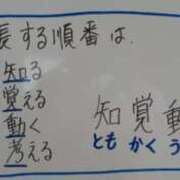 長する順番は
知る
覚える
動く
考える
知覚動
とも かく う